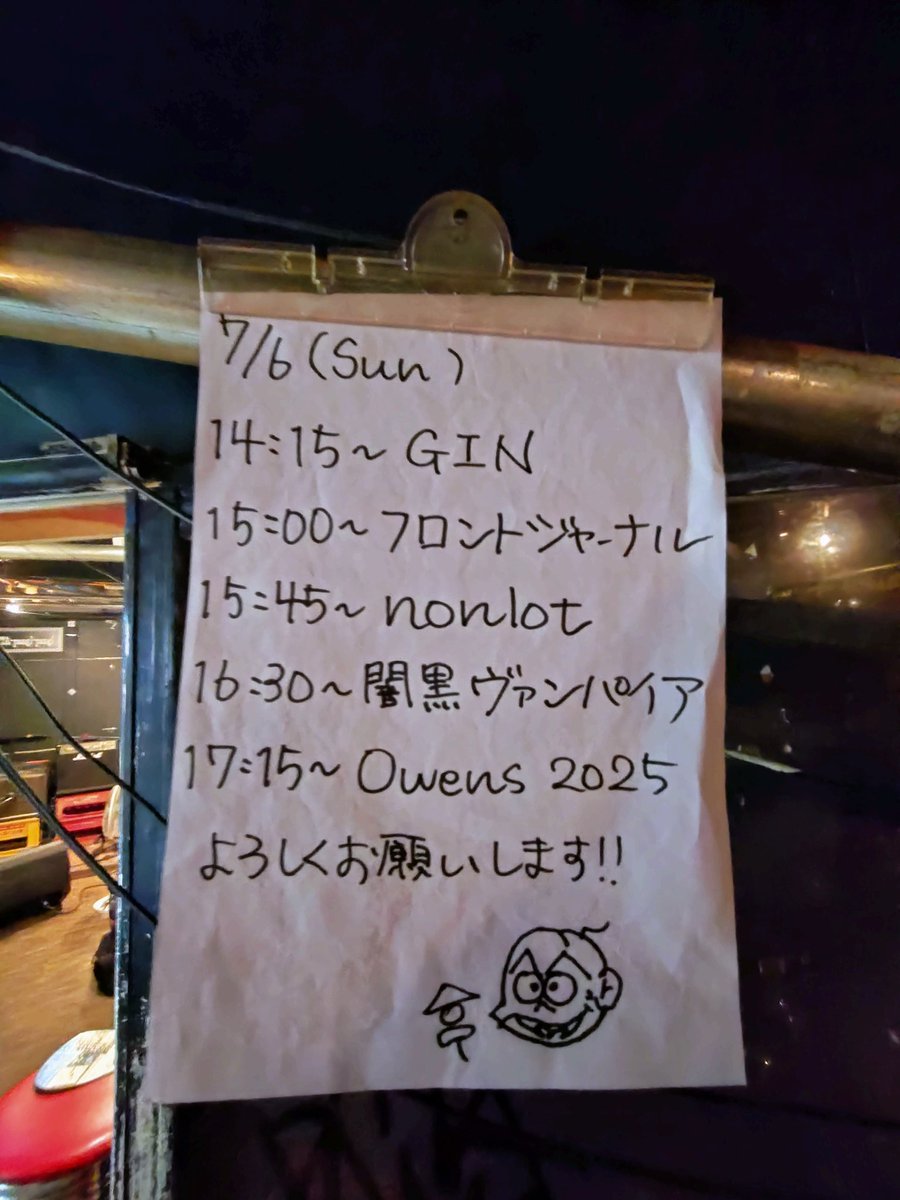 7/6 (Sun)
14:15~ GIN
15:00~ フロンドジャーナル
15:45~ nonlot
16:30~ 闇黒ヴァンパイア
17:15~ Owens 2025
よろしくお願いします!!